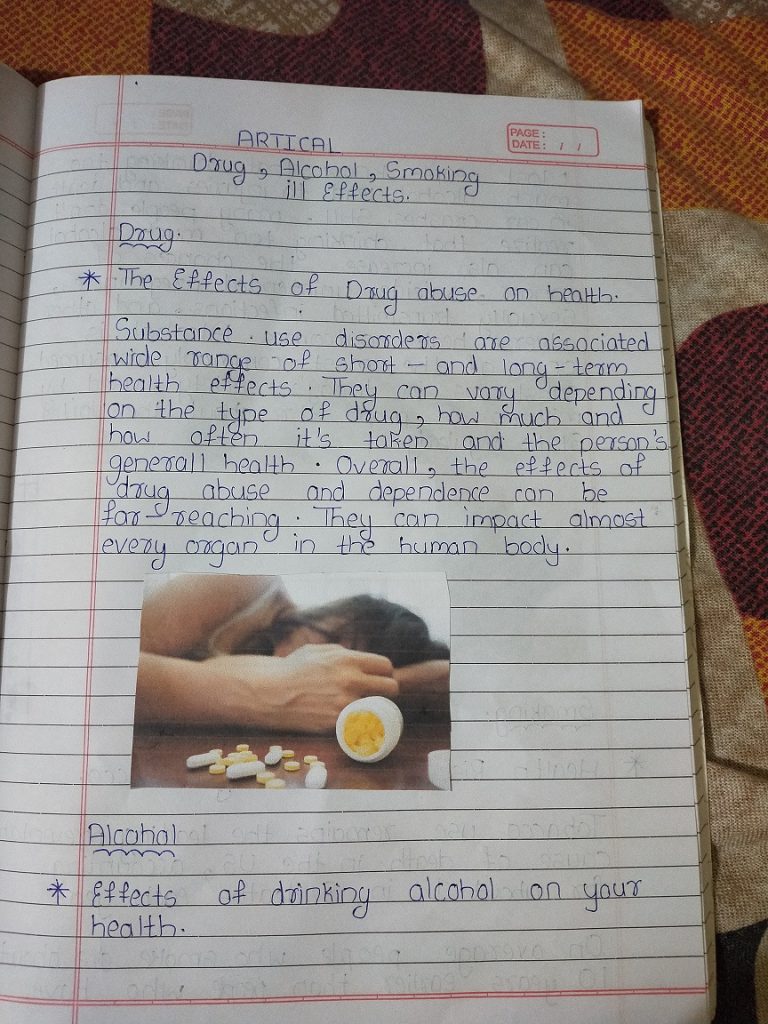 PAGE:
DATE: / /
ARTICAL
Drug, Alcohol, Smoking
ill Effects.
Drug.
* The Effects of Drug abuse on health.
Substance use disorders are associated
wide range of short - and long-term
health effects. They can vary depending
on the type of drug, how much and
how often it's taken and the person's
generall health. Overall, the effects of
drug abuse and dependence can be
far-reaching. They can impact almost
every organ in the human body.
Alcohol
* Effects of drinking alcohol on your
health.